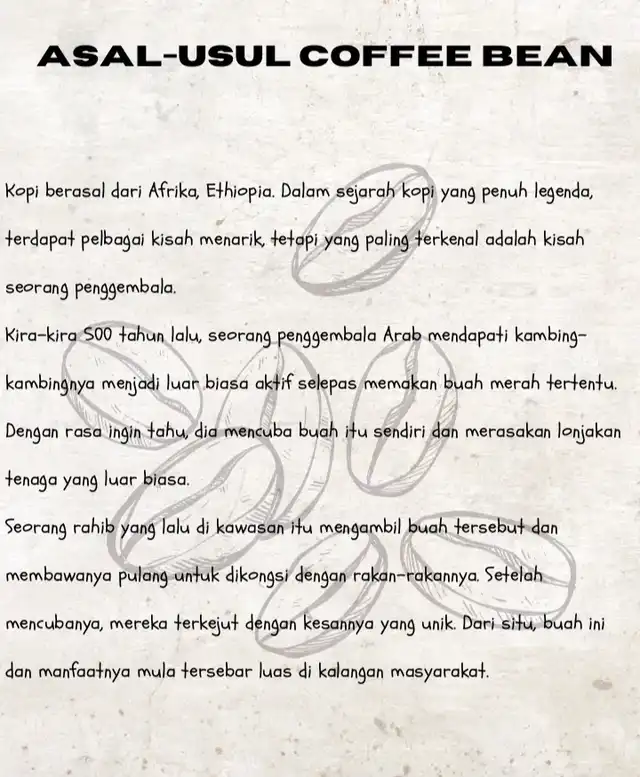 ASAL-USUL COFFEE BEAN
Kopi berasal dari Afrika, Ethiopia. Dalam sejarah kopi yang penuh legenda,
terdapat pelbagai kisah menarik, tetapi yang paling terkenal adalah kisah
seorang penggembala.
Kira-kira 500 tahun lalu, seorang penggembala Arab mendapati kambing-
kambingnya menjadi luar biasa aktif selepas memakan buah merah tertentu.
Dengan rasa ingin tahu, dia mencuba buah itu sendiri dan merasakan lonjakan
tenaga yang luar biasa.
Seorang rahib yang lalu di kawasan itu mengambil buah tersebut dan
membawanya pulang untuk dikongsi dengan rakan-rakannya. Setelah
mencubanya, mereka terkejut dengan kesannya yang unik. Dari situ, buah ini
dan manfaatnya mula tersebar luas di kalangan masyarakat.